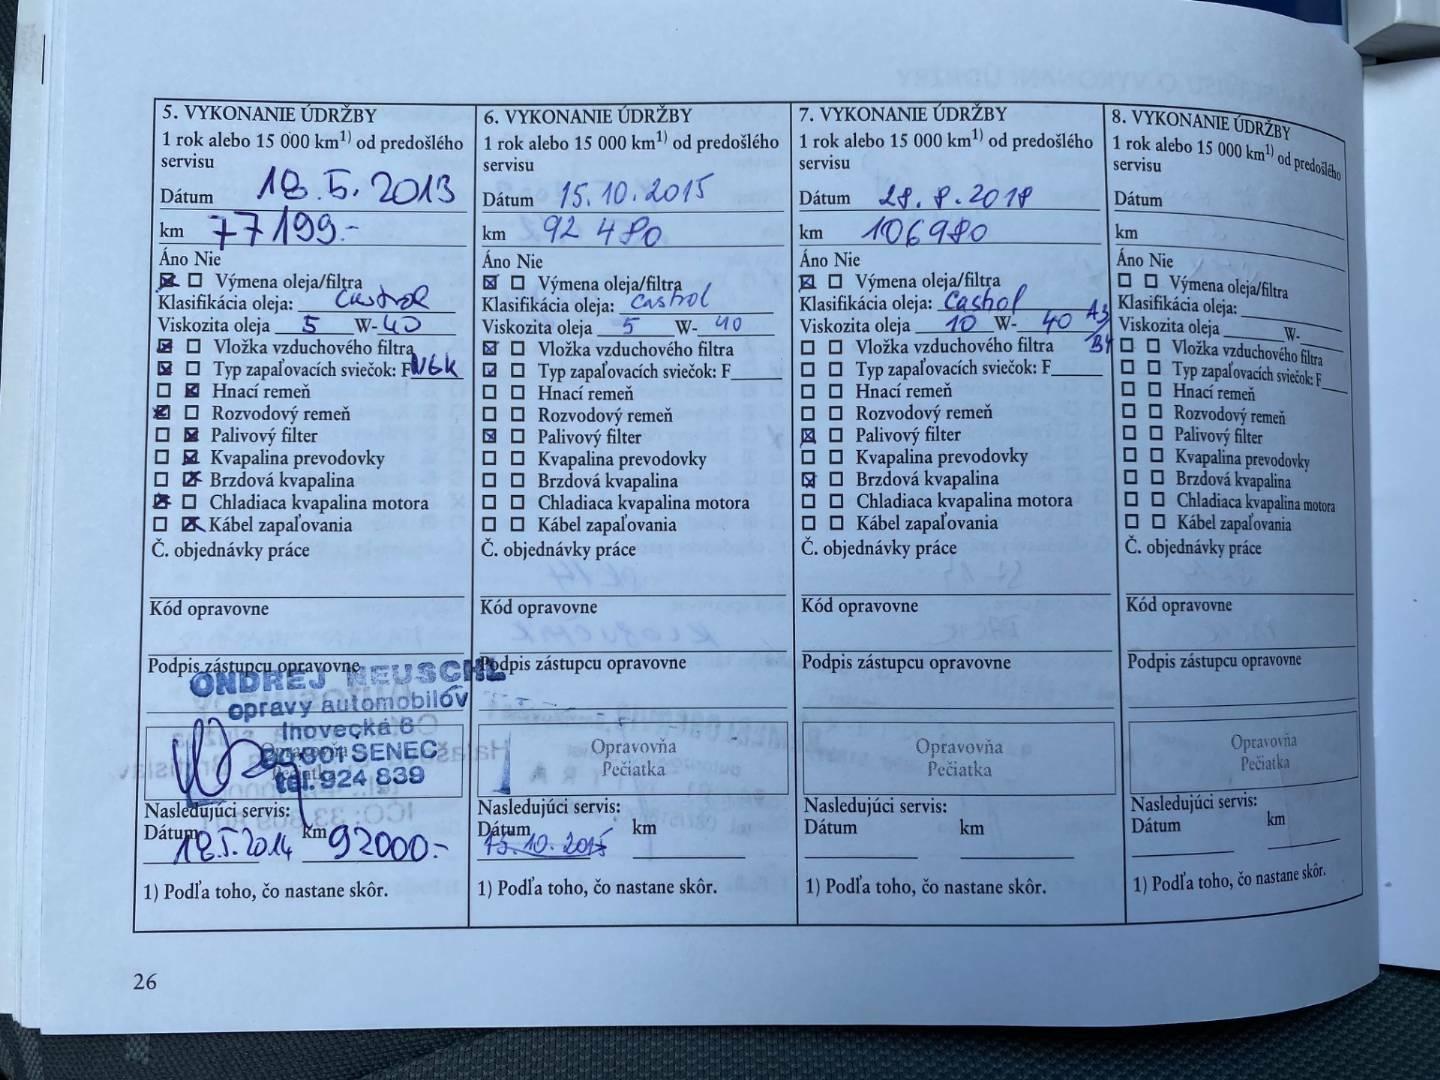 5. VYKONANIE ÚDRŽBY
1 rok alebo 15 000 km1) od predošlého
servisu
Dátum 18.5.2013
km 77199.-
Áno Nie
Výmena oleja/filtra
Klasifikácia oleja: Castrol
Viskozita oleja 5 W- 40
Vložka vzduchového filtra
Typ zapaľovacích sviečok: F NGK
Hnací remeň
Rozvodový remeň
Palivový filter
Kvapalina prevodovky
Brzdová kvapalina
Chladiaca kvapalina motora
Kábel zapaľovania
Č. objednávky práce
Kód opravovne
Podpis zástupcu opravovne
ONDREJ NEUSCHL
opravy automobilóv
Ihovecká 6
SENEC
tel. 924 839
Opravovňa
Pečiatka
Nasledujúci servis:
Dátum 18.5.2014 km 92000.-
1) Podľa toho, čo nastane skôr.
6. VYKONANIE ÚDRŽBY
1 rok alebo 15 000 km1) od predošlého
servisu
Dátum 15.10.2015
km 92 480
Áno Nie
Výmena oleja/filtra
Klasifikácia oleja: Castrol
Viskozita oleja 5 W- 40
Vložka vzduchového filtra
Typ zapaľovacích sviečok: F
Hnací remeň
Rozvodový remeň
Palivový filter
Kvapalina prevodovky
Brzdová kvapalina
Chladiaca kvapalina motora
Kábel zapaľovania
Č. objednávky práce
Kód opravovne
Podpis zástupcu opravovne
Opravovňa
Pečiatka
Nasledujúci servis:
Dátum 15.10.2015 km
1) Podľa toho, čo nastane skôr.
7. VYKONANIE ÚDRŽBY
1 rok alebo 15 000 km1) od predošlého
servisu
Dátum 28.8.2018
km 106980
Áno Nie
Výmena oleja/filtra
Klasifikácia oleja: Castrol
Viskozita oleja 10 W- 40 A3
B4
Vložka vzduchového filtra
Typ zapaľovacích sviečok: F
Hnací remeň
Rozvodový remeň
Palivový filter
Kvapalina prevodovky
Brzdová kvapalina
Chladiaca kvapalina motora
Kábel zapaľovania
Č. objednávky práce
Kód opravovne
Podpis zástupcu opravovne
Opravovňa
Pečiatka
Nasledujúci servis:
Dátum km
1) Podľa toho, čo nastane skôr.
8. VYKONANIE ÚDRŽBY
1 rok alebo 15 000 km1) od predošlého
servisu
Dátum
km
Áno Nie
Výmena oleja/filtra
Klasifikácia oleja:
Viskozita oleja W-
Vložka vzduchového filtra
Typ zapaľovacích sviečok: F
Hnací remeň
Rozvodový remeň
Palivový filter
Kvapalina prevodovky
Brzdová kvapalina
Chladiaca kvapalina motora
Kábel zapaľovania
Č. objednávky práce
Kód opravovne
Podpis zástupcu opravovne
Opravovňa
Pečiatka
Nasledujúci servis:
Dátum km
1) Podľa toho, čo nastane skôr.
26